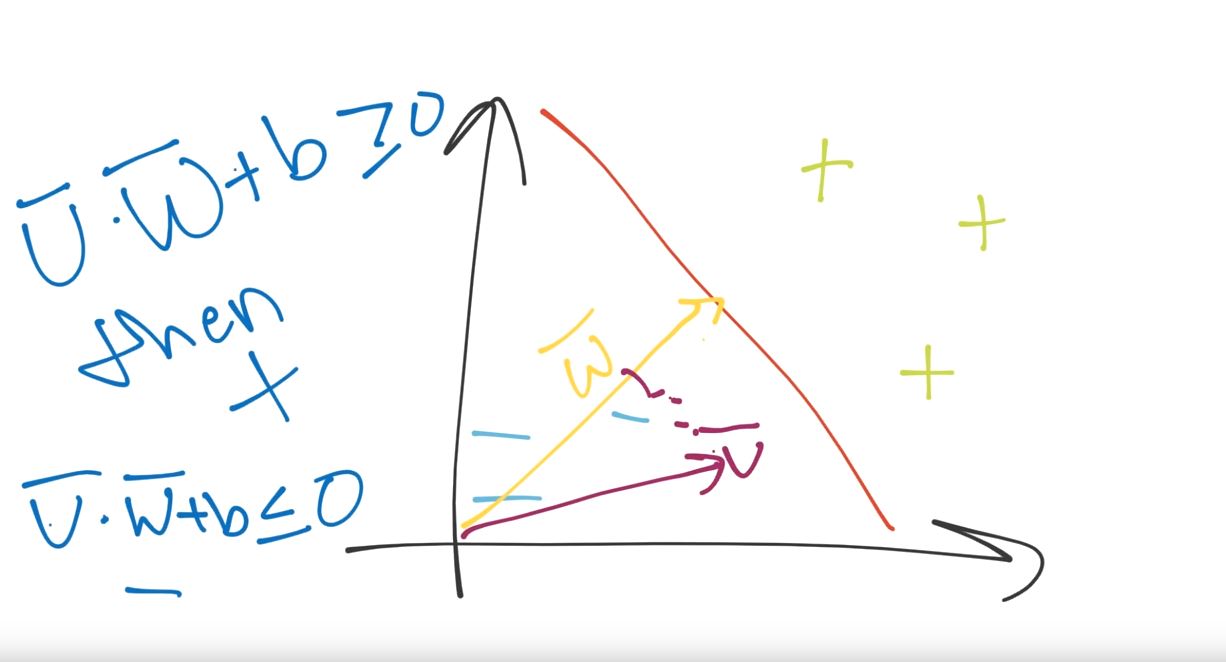 U̅·W̅+b≥0
then
+
U̅·W̅+b≤0
−
W̅
U̅
+
+
+
−
−
−